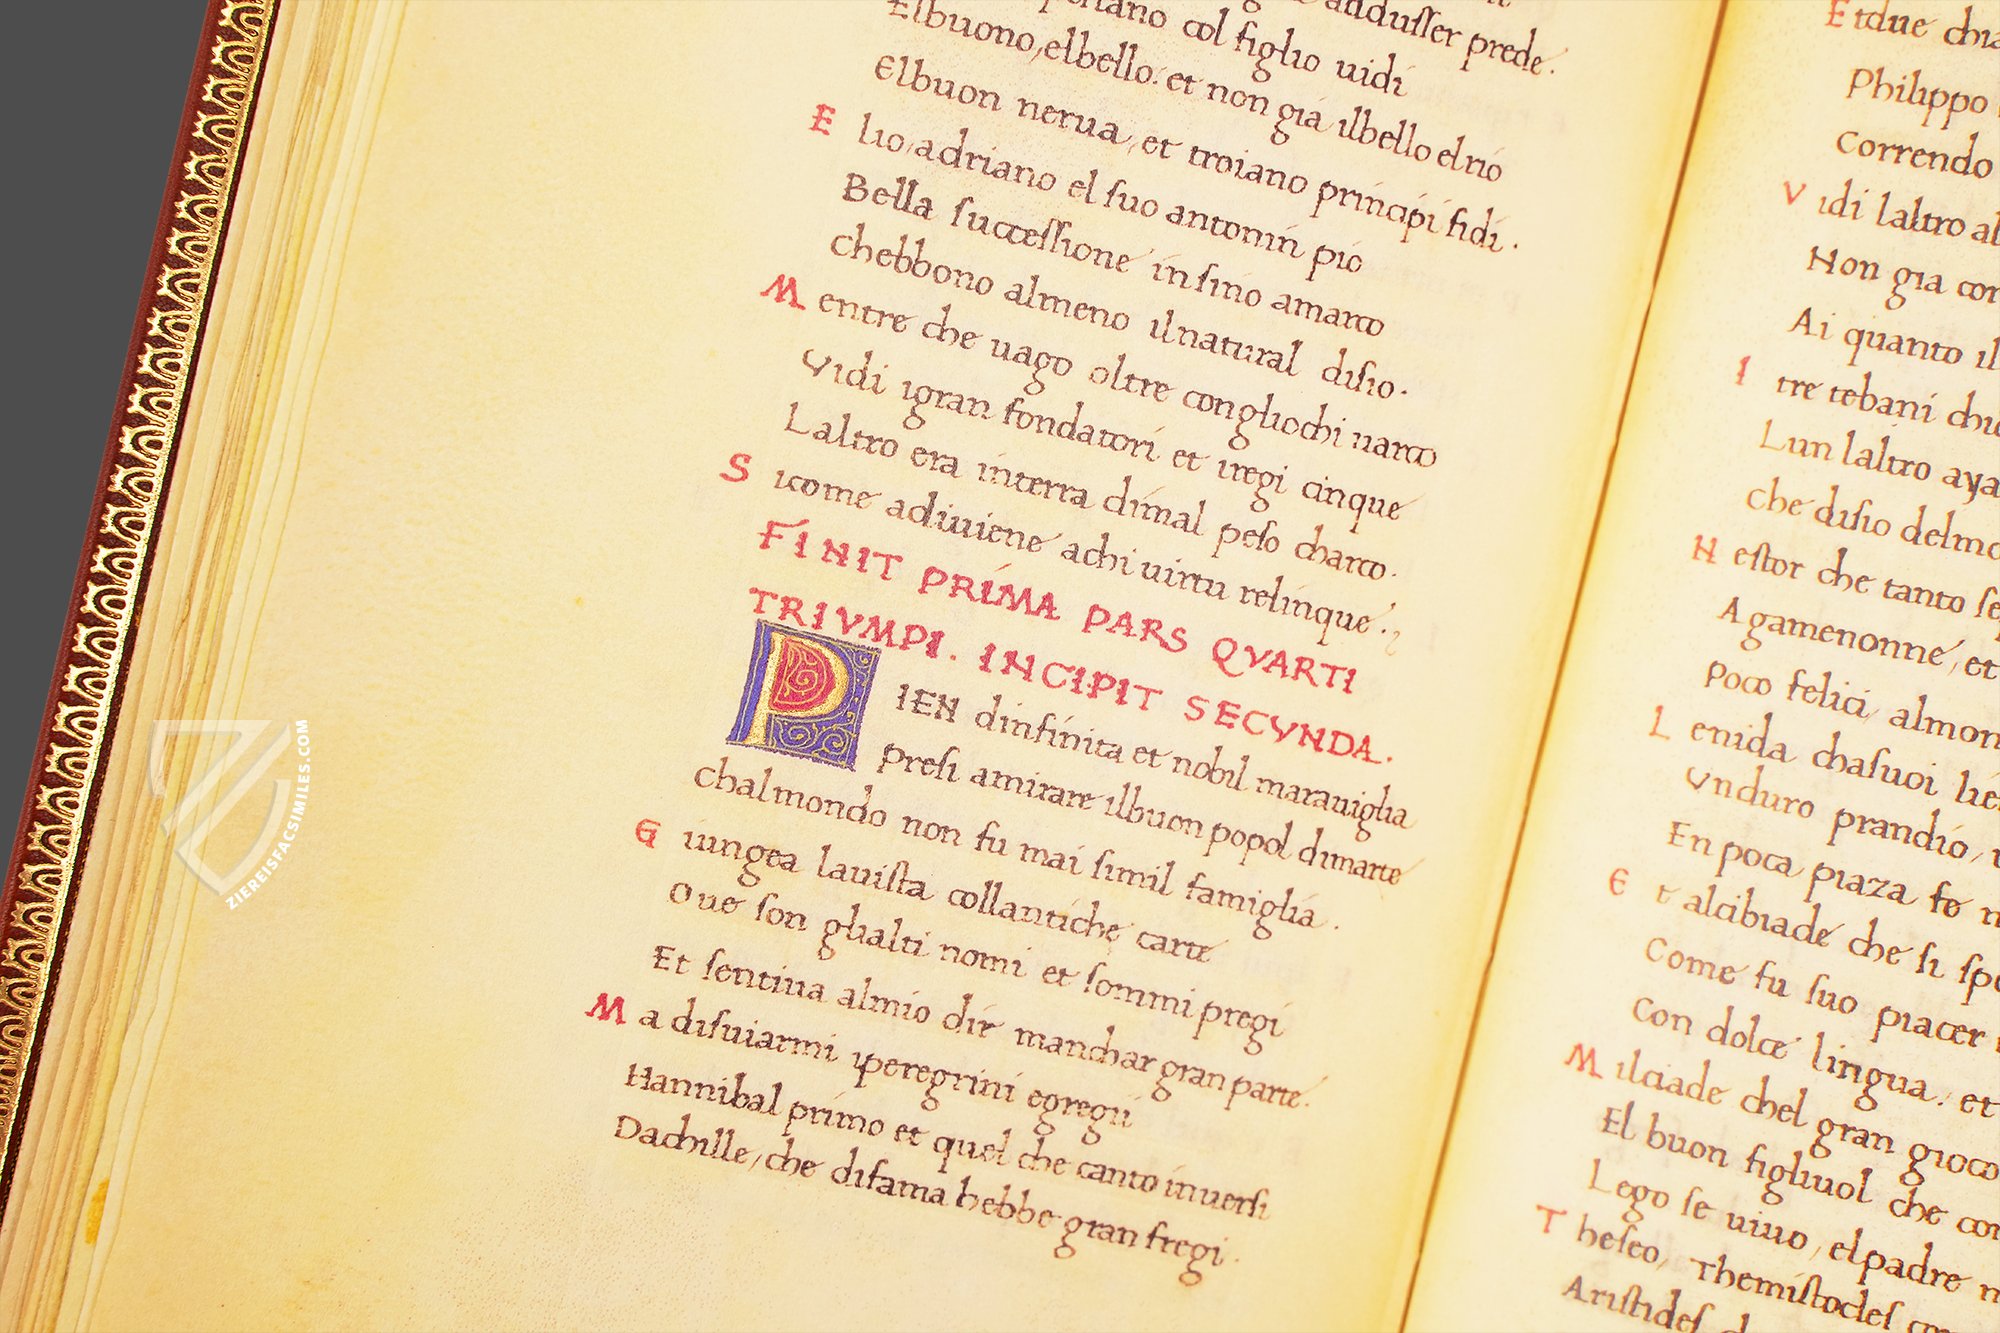 adduſſer prede.
col figlio uidi
Elbuono, elbello. et non già ilbello elrio
Elbuon nerua, et troiano principi fidi.
E lio, adriano el ſuo antonin pio
Bella ſucceſſione inſino amarco
chebbono almeno ilnatural diſio.
M entre che uago oltre congliochi uarco
Vidi igran fondatori et iregi cinque
Laltro era interra dimal peſo charco.
S icome adiuiene achi uirtu relinque.
FINIT PRIMA PARS QVARTI
TRIVMPI. INCIPIT SECVNDA.
PIEN dinfinita et nobil marauiglia
Preſi amirare ilbuon popol dimarte
chalmondo non fu mai ſimil famiglia.
G iungea lauiſta collantiche carte
Oue ſon glialti nomi et ſommi pregi
Et ſentiua almio dir manchar gran parte.
M a diſuiarmi iperegrini egregii
Hannibal primo et quel che canto inuerſi
Dachille, che difama hebbe gran fregi.
Etdue
Philippo
Correndo
V idi laltro
Non gia
Ai quanto
I tre tebani
Lun laltro
che diſio
N eſtor che tanto
Agamenonne, et
Poco felici, almon
L enida chaſuoi
Vnduro prandio,
En poca piaza fe
E t alcibiade che ſi
Come fu ſuo piacer
Con dolce lingua. et
M ilciade chel gran gioco
El buon figliuol che
Lego ſe uiuo, elpadre
T heſeo, Themiſtocleſ
Ariſtideſ
ZIEREISFACSIMILES.COM